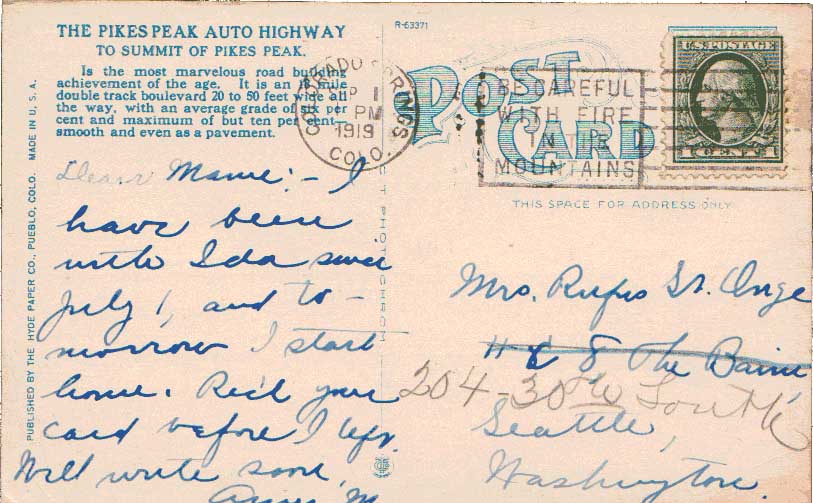 THE PIKES PEAK AUTO HIGHWAY
TO SUMMIT OF PIKES PEAK.
Is the most marvelous road building
achievement of the age. It is an mile
double track boulevard 20 to 50 feet wide all
the way, with an average grade of six per
cent and maximum of but ten per cent—
smooth and even as a pavement.
Dear Mame:- I
have been
with Ida since
July 1, and to-
morrow I start
home. Rec'd your
card before I left.
Will write soon,
Anna M.
PUBLISHED BY THE HYDE PAPER CO., PUEBLO, COLO. MADE IN U. S. A.
R-63371
COLORADO SPRINGS
1
PM
1919
COLO.
POST
CARD
BE CAREFUL
WITH FIRE
IN THE
MOUNTAINS
U.S. POSTAGE
1 CENT 1
THIS SPACE FOR ADDRESS ONLY
Mrs. Rufus St. Onge
8 The
204-30th South
Seattle,
Washington.